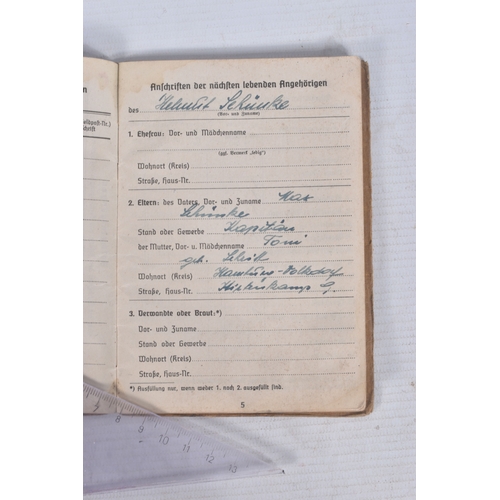 en
eldpost-Nr.)
schrift
Anschriften der nächsten lebenden Angehörigen
des Helmut Schünke
(Vor- und Zuname)
1. Ehefrau: Vor- und Mädchenname
(ggf. Vermerk „ledig“)
Wohnort (Kreis)
Straße, Haus-Nr.
2. Eltern: des Vaters, Vor- und Zuname Max
Schünke
Stand oder Gewerbe Kapitän
der Mutter, Vor- u. Mädchenname Toni
geb.
Wohnort (Kreis) Hamburg-Volksdorf
Straße, Haus-Nr. 9.
3. Verwandte oder Braut:*)
Vor- und Zuname
Stand oder Gewerbe
Wohnort (Kreis)
Straße, Haus-Nr.
*) Ausfüllung nur, wenn weder 1. noch 2. ausgefüllt sind.
5
8 9 10 11 12 13